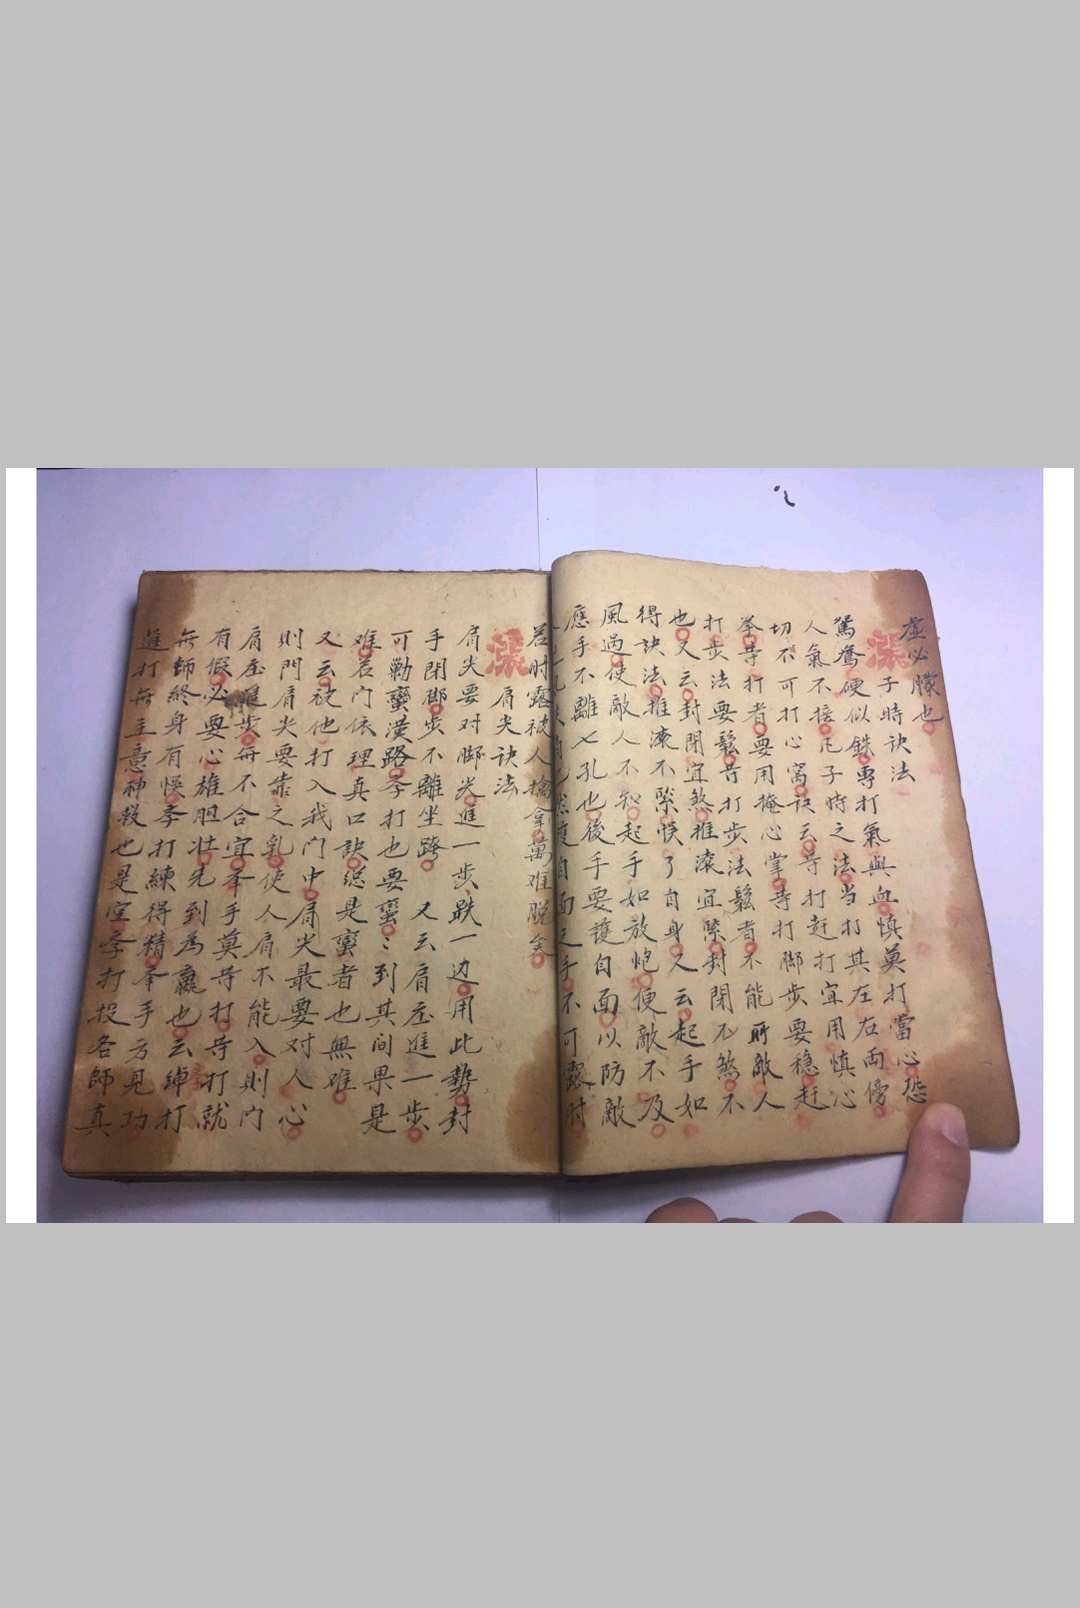 虛必朦也
子時訣法
鴛鴦硬似鉄專打氣與血慎莫打當心恐
人氣不接凡子時之法当打其在右両傍
切不可打心窩訣云寺打赶打宜用慎心
拳寺打者要用掩心掌寺打脚步要穏赶
打步法要鬆寺打步法鬆者不能所敵人
也又云封閉宜煞推滚宜緊封閉不煞不
得訣法推凍不緊悞了自身又云起手如
風過使敵人不知起手如放炮便敵不及
應手不離七孔也後手要護自面以防敵
自面之手不可露肘
若肘露被人擒拿萬难脱身
肩尖訣法
肩尖要对脚尖進一步跌一边用此勢封
手閉脚步不離坐跨 又云肩庄進一步
可勒蠻漢路拳打也要蠻〻到其间果是
难若门依理真口訣總是蠻者也無难
又云被他打入我门中肩尖最要对人心
則門肩尖要靠之乳使人肩不能入則门
肩庄進步無不合宜拳手莫寺打寺打就
有假必要心雄胆壮先到為贏也云掉打
無師終身有悞拳打練得精拳手方見功
進打無主意神教也是空拳打投名師真